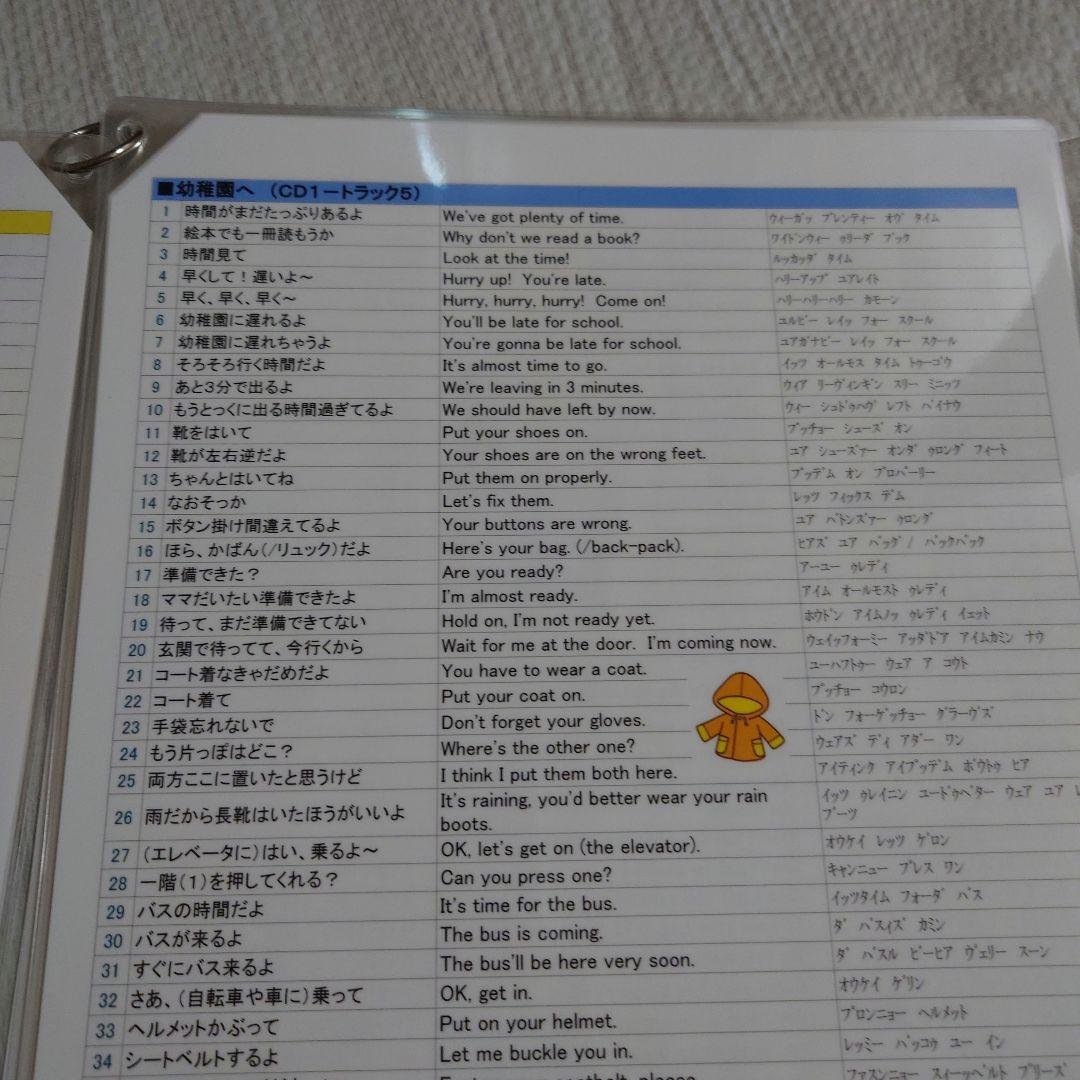 ■幼稚園へ （CD1ートラック5）
1 時間がまだたっぷりあるよ We've got plenty of time. ウィーガッ プレンティー オヴ タイム
2 絵本でも一冊読もうか Why don't we read a book? ワイドンウィー ゥリーダ ブック
3 時間見て Look at the time! ルッカッダ タイム
4 早くして！遅いよ〜 Hurry up! You're late. ハリーアップ ユアレイト
5 早く、早く、早く〜 Hurry, hurry, hurry! Come on! ハリーハリーハリー カモーン
6 幼稚園に遅れるよ You'll be late for school. ユルビー レイッ フォー スクール
7 幼稚園に遅れちゃうよ You're gonna be late for school. ユアガナビー レイッ フォー スクール
8 そろそろ行く時間だよ It's almost time to go. イッツ オールモス タイム トゥーゴウ
9 あと3分で出るよ We're leaving in 3 minutes. ウィア リーヴィンギン スリー ミニッツ
10 もうとっくに出る時間過ぎてるよ We should have left by now. ウィー シュドゥハヴ レフト バイナウ
11 靴をはいて Put your shoes on. プッチョー シューズ オン
12 靴が左右逆だよ Your shoes are on the wrong feet. ユア シューズァー オンダ ゥロング フィート
13 ちゃんとはいてね Put them on properly. プッデム オン プロパーリー
14 なおそっか Let's fix them. レッツ フィックス デム
15 ボタン掛け間違えてるよ Your buttons are wrong. ユア バトンズァー ゥロング
16 ほら、かばん（/リュック）だよ Here's your bag. (/back-pack). ヒアズ ユア バッグ / バックパック
17 準備できた？ Are you ready? アーユー ゥレディ
18 ママだいたい準備できたよ I'm almost ready. アイム オールモスト ゥレディ
19 待って、まだ準備できてない Hold on, I'm not ready yet. ホウドン アイムノッ ゥレディ イェット
20 玄関で待ってて、今行くから Wait for me at the door. I'm coming now. ウェイッフォーミー アッダドア アイムカミン ナウ
21 コート着なきゃだめだよ You have to wear a coat. ユーハフトゥー ウェア ア コウト
22 コート着て Put your coat on. プッチョー コウロン
23 手袋忘れないで Don't forget your gloves. ドン フォーゲッチョー グラーヴズ
24 もう片っぽはどこ？ Where's the other one? ウェアズ ディ アダー ワン
25 両方ここに置いたと思うけど I think I put them both here. アイティンク アイプッデム ボウトゥ ヒア
26 雨だから長靴はいたほうがいいよ It's raining, you'd better wear your rain イッツ ゥレイニン ユードゥベター ウェア ユア
boots. ブーツ
27 （エレベータに）はい、乗るよ〜 OK, let's get on (the elevator). オウケイ レッツ ゲロン
28 一階（1）を押してくれる？ Can you press one? キャンニュー プレス ワン
29 バスの時間だよ It's time for the bus. イッツタイム フォーダ バス
30 バスが来るよ The bus is coming. ダ バスイズ カミン
31 すぐにバス来るよ The bus'll be here very soon. ダ バスル ビーヒア ヴェリー スーン
32 さあ、（自転車や車に）乗って OK, get in. オウケイ ゲリン
33 ヘルメットかぶって Put on your helmet. プロンニョー ヘルメット
34 シートベルトするよ Let me buckle you in. レッミー バッコゥ ユー イン
ファスンニョー スィーッベルト プリーズ